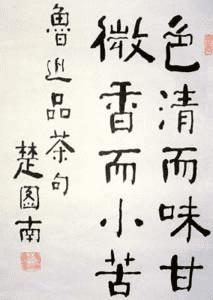 色清而味甘
微香而小苦
魯迅品茶句
楚图南